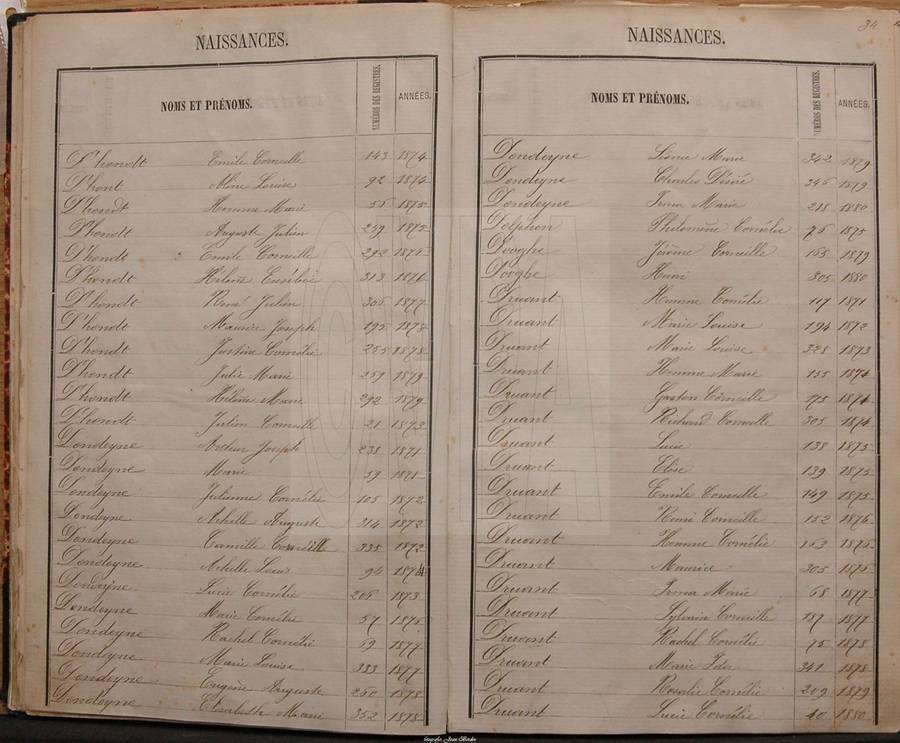 NAISSANCES.
NOMS ET PRÉNOMS. NUMÉROS DES REGISTRES. ANNÉES.
D'hondt Emile Corneille 143 1874
D'hont Aline Louise 92 1874
D'hondt Hermine Marie 58 1875
D'hondt Auguste Julien 249 1875
D'hondt Emile Corneille 292 1876
D'hondt Hélène Eusébie 313 1876
D'hondt René Julien 306 1877
D'hondt Maurice Joseph 195 1878
D'hondt Justine Cornélie 255 1878
D'hondt Julie Marie 259 1879
D'hondt Hélène Marie 292 1879
D'hondt Julien Corneille 21 1873
Dondeyne Arthur Joseph 238 1871
Dondeyne Marie 59 1871
Dondeyne Julienne Cornélie 105 1872
Dondeyne Achille Auguste 314 1872
Dondeyne Camille Corneille 335 1872
Dondeyne Achille 94 1874
Dondeyne Lucie Cornélie 206 1873
Dondeyne Marie Cornélie 57 1875
Dondeyne Rachel Cornélie 69 1877
Dondeyne Marie Louise 333 1877
Dondeyne Eugène Auguste 260 1878
Dondeyne Elisabeth Marie 352 1878
34
NAISSANCES.
NOMS ET PRÉNOMS. NUMÉROS DES REGISTRES. ANNÉES.
Dondeyne Léonie Marie 342 1879
Dondeyne Charles Désiré 346 1879
Dondeyne Irma Marie 218 1880
Dolphen Philomène Cornélie 76 1875
Dooghe Jérôme Corneille 165 1879
Dooghe Henri 305 1880
Druant Hermine Cornélie 117 1871
Druant Marie Louise 194 1872
Druant Marie Louise 328 1873
Druant Hermine Marie 155 1874
Druant Gaston Corneille 175 1874
Druant Richard Corneille 305 1874
Druant Lucie 138 1875
Druant Elise 139 1875
Druant Emile Corneille 149 1875
Druant Remi Corneille 152 1876
Druant Hermine Cornélie 163 1876
Druant Maurice 305 1876
Druant Irma Marie 68 1877
Druant Sylvain Corneille 187 1877
Druant Rachel Cornélie 75 1878
Druant Marie Ida 341 1878
Druant Rosalie Cornélie 209 1879
Druant Lucie Cornélie 40 1880